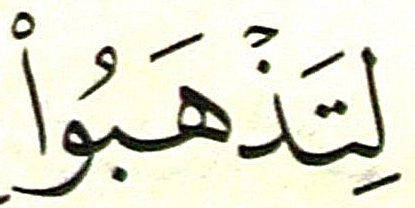 لِتَذْهَبُوا۟